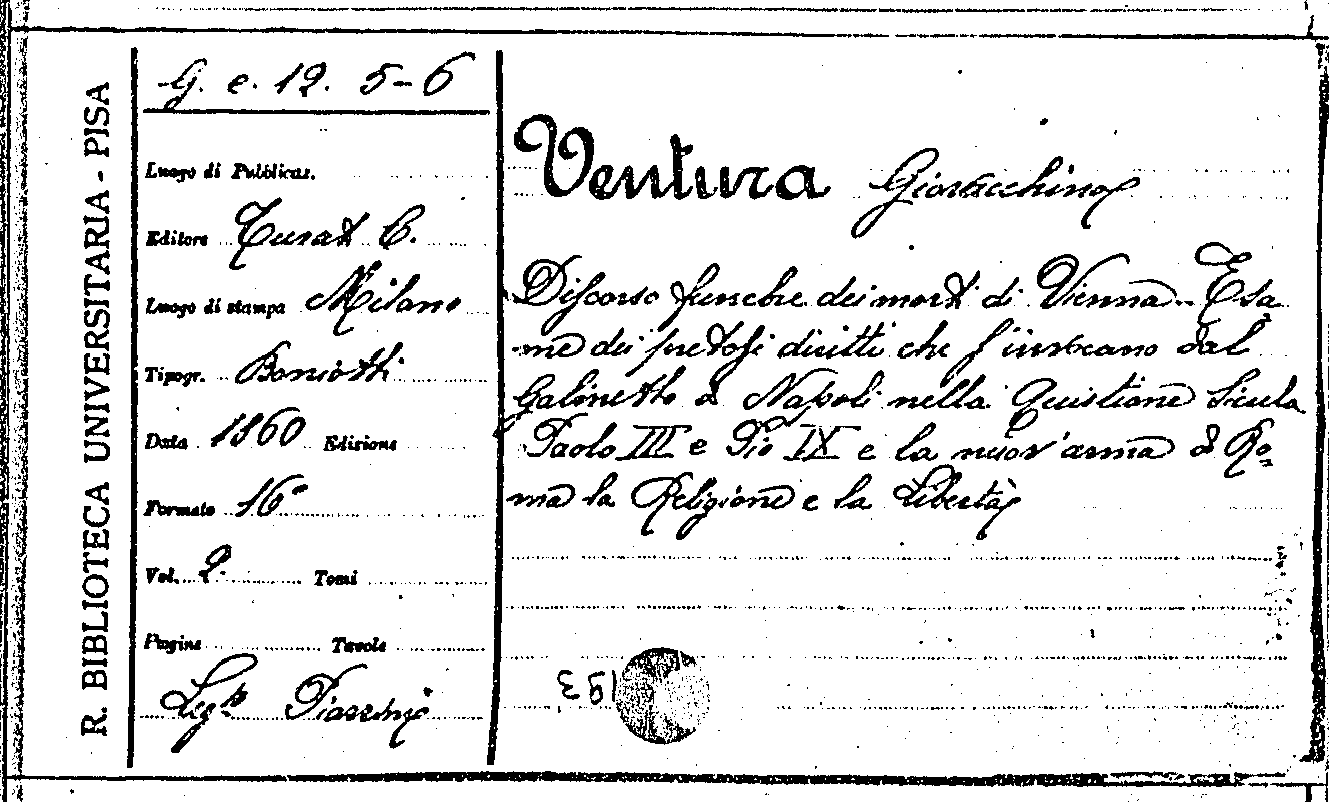 R. BIBLIOTECA UNIVERSITARIA - PISA
G. e. 12. 5-6
Luogo di Pubblicaz.
Editore Turati C.
Luogo di stampa Milano
Tipogr. Boniotti
Data 1860 Edizione
Formato 16°
Vol. 2 Tomi
Pagine Tavole
Leg.to
Ventura Gioacchino
Discorso funebre dei morti di Vienna - Esa
me dei pretesi diritti che s'invocano dal
Gabinetto di Napoli nella Quistione Sicula
Paolo III e Pio IX e la nuov'arma di Ro-
ma la Religione e la Libertà
193